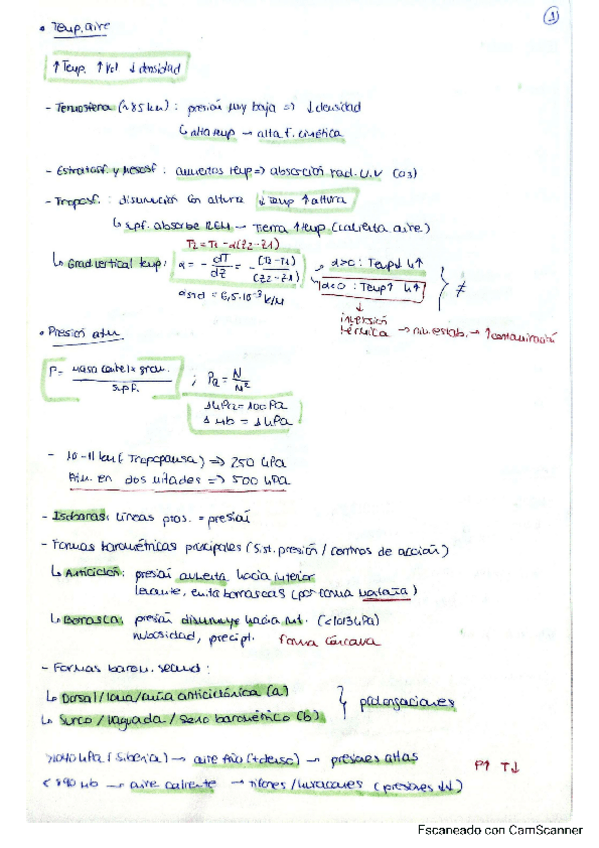 1
• Temp. aire
↑Temp. ↑Vol. ↓densidad
- Termosfera (~85km): presión muy baja => ↓densidad
↳ alta temp → alta E. cinética
- Estratosf. y Mesosf: aumentos temp => absorción rad. U.V (O3)
- Troposf.: disminución con altura ↓Temp ↑altura
↳ spf. absorbe REM → Tierra ↑temp (calienta aire)
T2 = T1 - α(Z2-Z1)
↳ Grad vertical temp: α = - dT/dZ = - (T2-T1)/(Z2-Z1) → α>0: Temp↓ h↑
α<0: Temp↑ h↑ } ≠
αstd = 6,5·10⁻³ K/M
inversión
térmica → niv. estab. → ↑contaminación
• Presión atm.
P = masa × grav. / spf. ; Pa = N/M²
1hPa = 100Pa
1mb = 1hPa
- 10-11 km (Tropopausa) => 250 hPa
Atm. en dos mitades => 500 hPa
- Isobaras: líneas ptos. = presión
- Formas barométricas principales (Sist. presión / centros de acción)
↳ Anticiclón: presión aumenta hacia interior
levante, evita borrascas (por forma montaña)
↳ Borrasca: presión disminuye hacia int. (<1013hPa)
nubosidad, precipt. forma cóncava
- Formas barom. secund:
↳ Dorsal/loma/cuña anticiclónica (a)
↳ Surco / Vaguada / Seno barométrico (b) } prolongaciones
>1040 hPa (Siberia) → aire frío (+denso) → presiones altas P↑ T↓
< 890 mb → aire caliente → tifones/huracanes (presiones ↓↓)
Escaneado con CamScanner